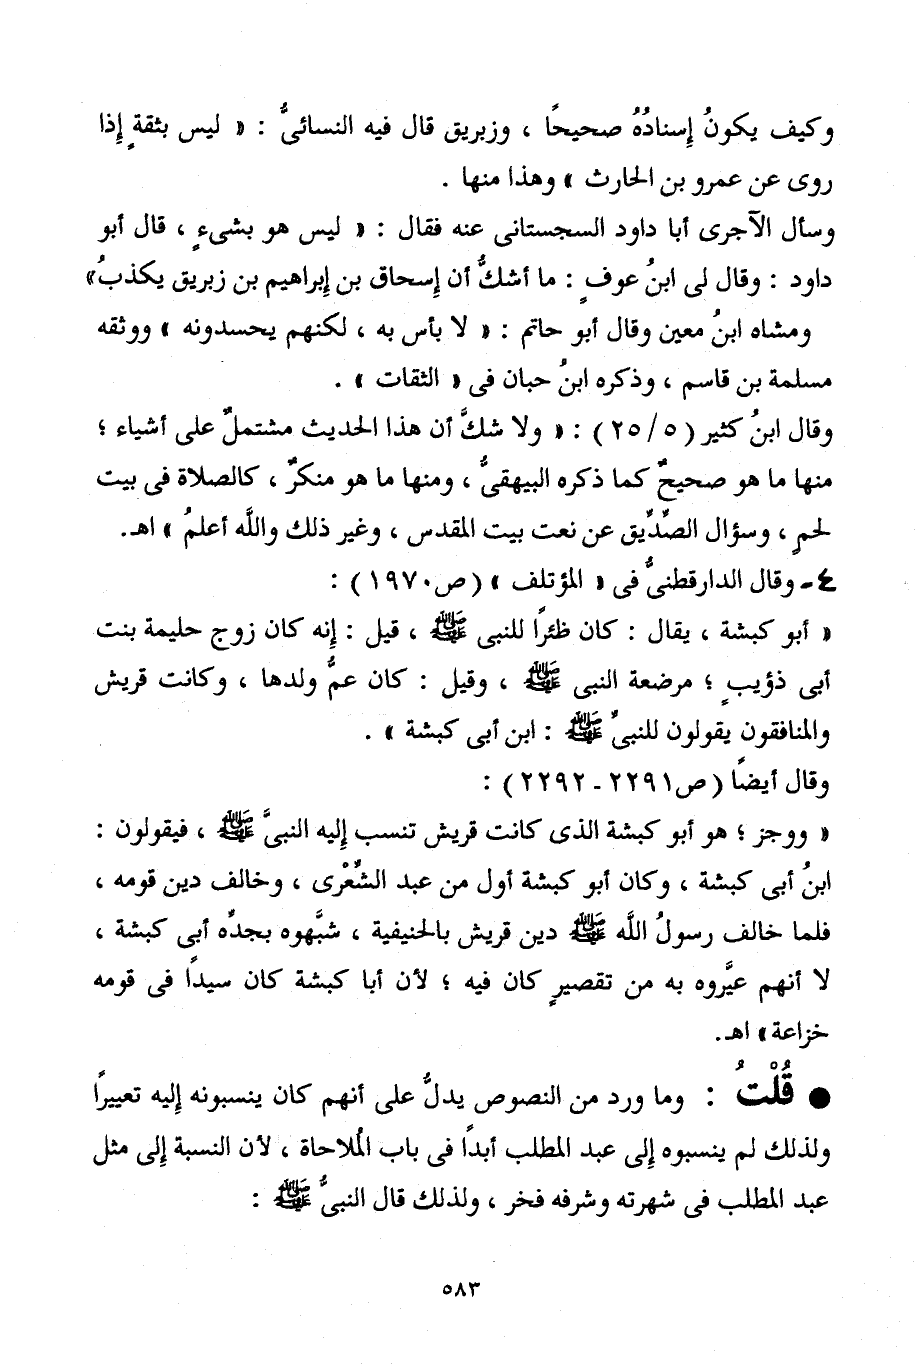 وكيف يكونُ إسنادُهُ صحيحًا ، وزبريق قال فيه النسائىُّ : « ليس بثقةٍ إذا
روى عن عمرو بن الحارث » وهذا منها .
وسأل الآجرى أبا داود السجستانى عنه فقال : « ليس هو بشىءٍ ، قال أبو
داود : وقال لى ابنُ عوفٍ : ما أشكُّ أن إسحاق بن إبراهيم بن زبريق يكذبُ»
ومشاه ابنُ معين وقال أبو حاتم : « لا بأس به ، لكنهم يحسدونه » ووثقه
مسلمة بن قاسم ، وذكره ابنُ حبان فى « الثقات » .
وقال ابنُ كثير (٢٥/٥) : « ولا شكَّ أن هذا الحديث مشتملٌ على أشياء ؛
منها ما هو صحيحٌ كما ذكره البيهقىُّ ، ومنها ما هو منكرٌ ، كالصلاة فى بيت
لحمٍ ، وسؤال الصِّدِّيق عن نعت بيت المقدس ، وغير ذلك والله أعلمُ » اهـ.
٤ـ وقال الدارقطنىُّ فى « المؤتلف » (ص١٩٧٠) :
« أبو كبشة ، يقال : كان ظئرًا للنبى ﷺ ، قيل : إنه كان زوج حليمة بنت
أبى ذؤيبٍ ؛ مرضعة النبى ﷺ ، وقيل : كان عمُّ ولدها ، وكانت قريش
والمنافقون يقولون للنبىِّ ﷺ : ابن أبى كبشة » .
وقال أيضًا (ص٢٢٩١ ـ ٢٢٩٢) :
« ووجز ؛ هو أبو كبشة الذى كانت قريش تنسب إليه النبىَّ ﷺ ، فيقولون :
ابنُ أبى كبشة ، وكان أبو كبشة أول من عبد الشِّعْرى ، وخالف دين قومه ،
فلما خالف رسولُ اللَّه ﷺ دين قريش بالحنيفية ، شبَّهوه بجدِّه أبى كبشة ،
لا أنهم عيَّروه به من تقصيرٍ كان فيه ؛ لأن أبا كبشة كان سيدًا فى قومه
خزاعة» اهـ.
● قُلْتُ : وما ورد من النصوص يدلُّ على أنهم كان ينسبونه إليه تعييرًا
ولذلك لم ينسبوه إلى عبد المطلب أبدًا فى باب المُلاحاة ، لأن النسبة إلى مثل
عبد المطلب فى شهرته وشرفه فخر ، ولذلك قال النبىُّ ﷺ :
٥٨٣